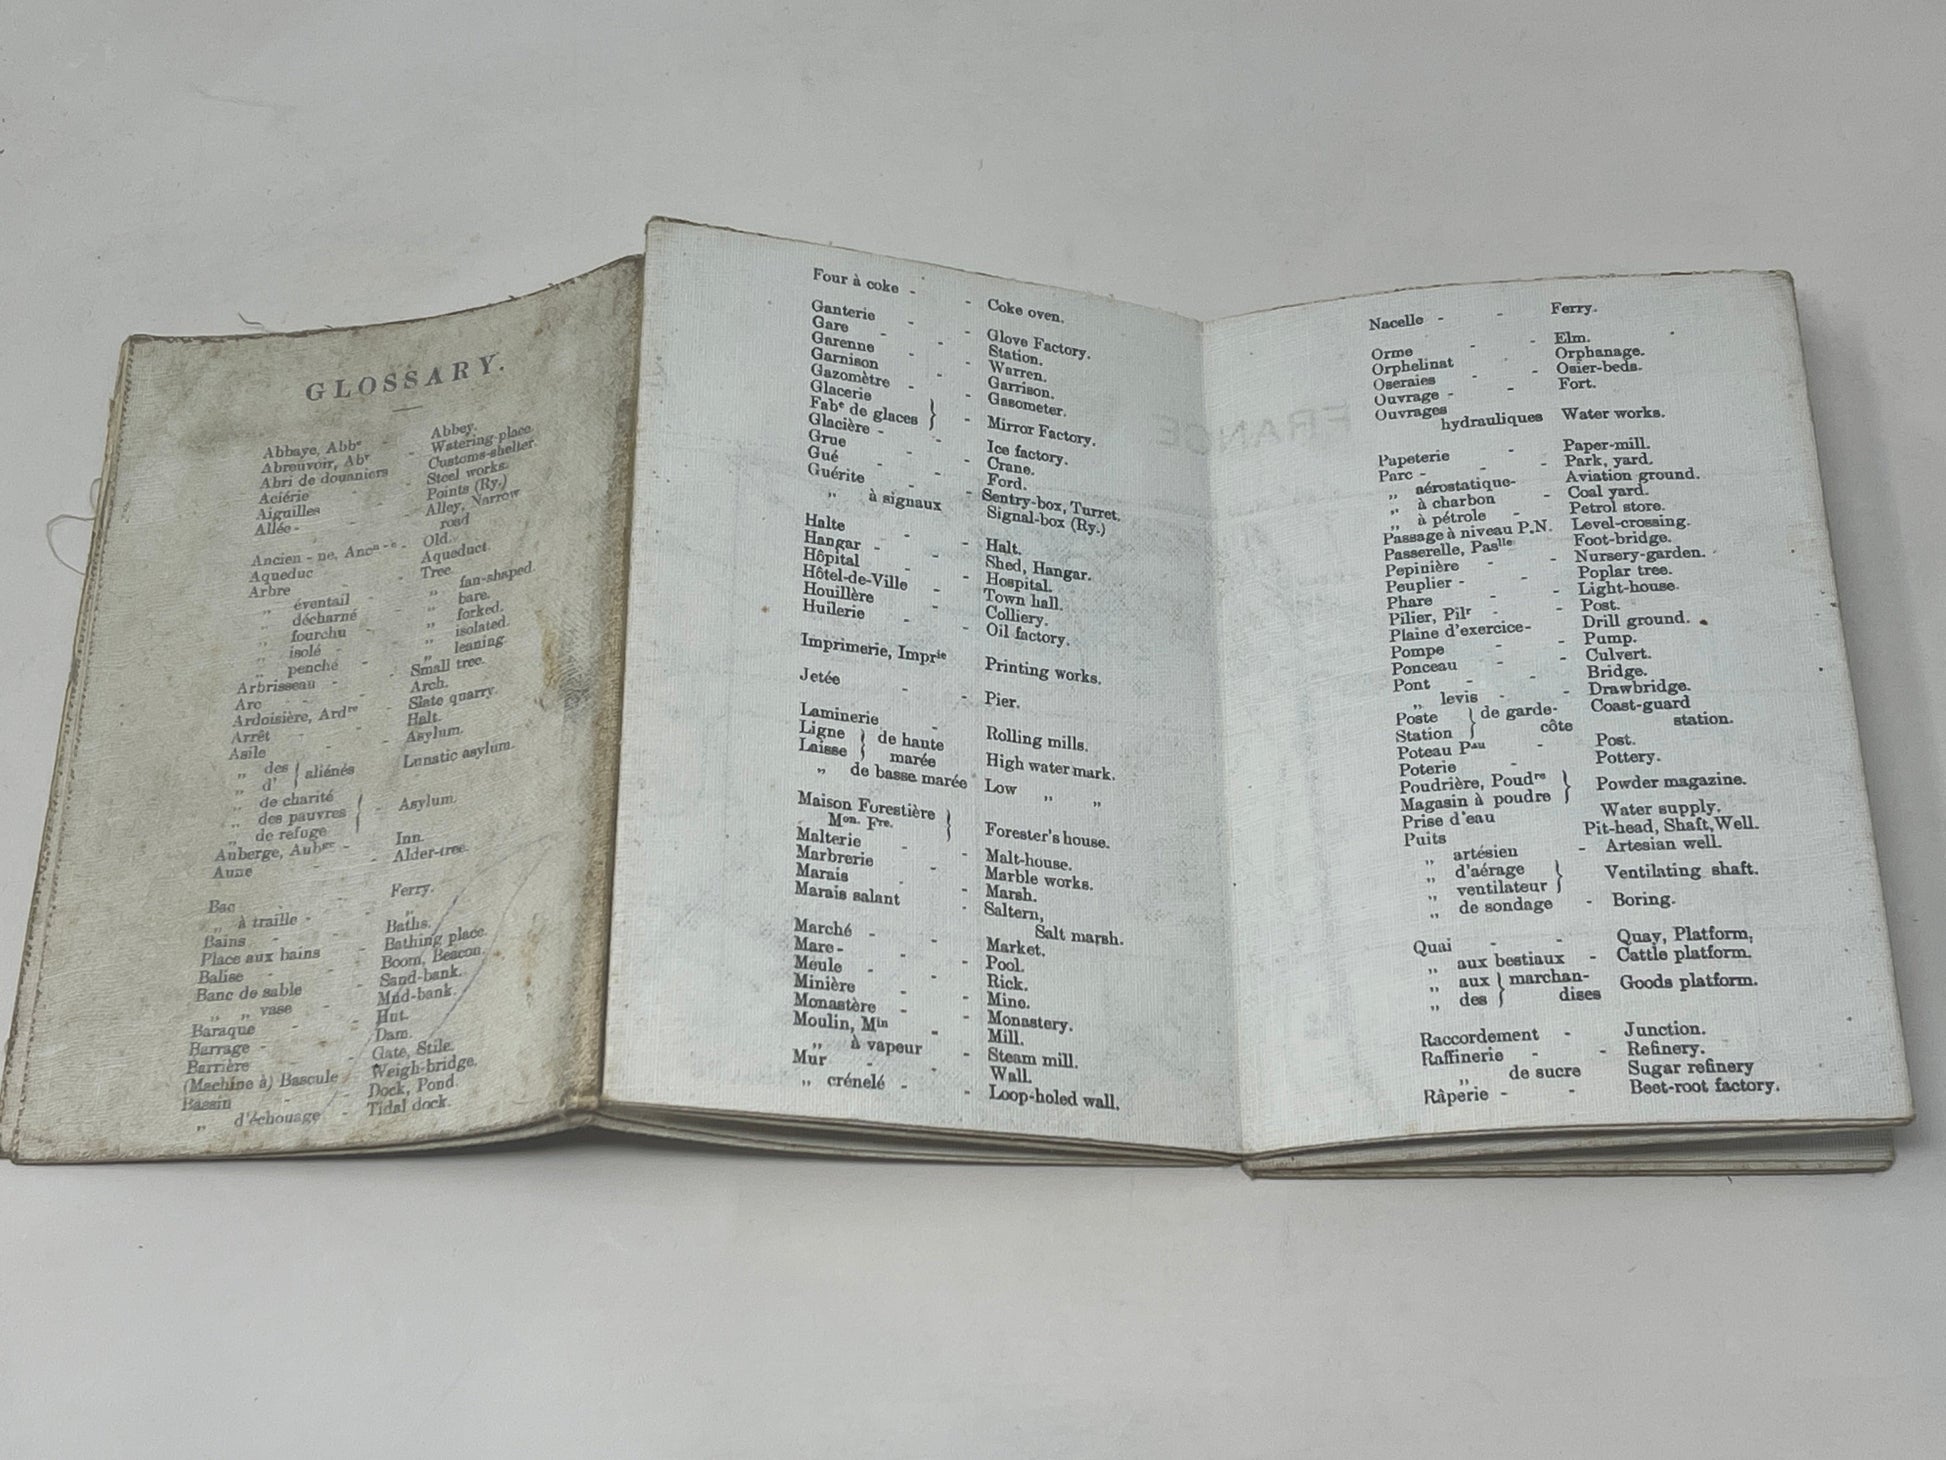 GLOSSARY.
Abbaye, Abbᵉ - Abbey.
Abreuvoir, Abʳ - Watering-place.
Abri de douaniers Customs-shelter.
Aciérie - - Steel works.
Aiguilles - - Points (Ry.)
Allée - - - Alley, Narrow
road
Ancien - ne, Ancⁿ ⁻ ᵉ - Old.
Aqueduc - - Aqueduct.
Arbre - - Tree.
„ éventail - „ fan-shaped.
„ décharné - „ bare.
„ fourchu - „ forked.
„ isolé - - „ isolated.
„ penché - „ leaning.
Arbrisseau - - Small tree.
Arc - - - Arch.
Ardoisière, Ardʳᵉ - Slate quarry.
Arrêt - - Halt.
Asile - - - Asylum.
„ des } aliénés Lunatic asylum.
„ d'
„ de charité
„ des pauvres } - Asylum.
„ de refuge
Auberge, Aubᵍᵉ - - Inn.
Aune - - - Alder-tree.
Bac - - - Ferry.
„ à traille - - „
Bains - - - Baths.
Place aux bains - Bathing place.
Balise - - - Boom, Beacon.
Banc de sable - Sand-bank.
„ „ vase - Mud-bank.
Baraque - - Hut.
Barrage - - - Dam.
Barrière - - Gate, Stile.
(Machine à) Bascule Weigh-bridge.
Bassin - - Dock, Pond.
„ d'échouage - Tidal dock.
Four à coke - - Coke oven.
Ganterie - - Glove Factory.
Gare - - - Station.
Garenne - - Warren.
Garnison - - Garrison.
Gazomètre - - Gasometer.
Glacerie
Fabᵉ de glaces } - Mirror Factory.
Glacière - - Ice factory.
Grue - - - Crane.
Gué - - - Ford.
Guérite - - Sentry-box, Turret.
„ à signaux Signal-box (Ry.)
Halte - - Halt.
Hangar - - - Shed, Hangar.
Hôpital - - Hospital.
Hôtel-de-Ville - Town hall.
Houillère - - Colliery.
Huilerie - - Oil factory.
Imprimerie, Imprⁱᵉ Printing works.
Jetée - - Pier.
Laminerie - Rolling mills.
Ligne } de haute
Laisse } marée High water mark.
„ de basse marée Low „ „
Maison Forestière
Mᵒⁿ· Fʳᵉ· } Forester's house.
Malterie - - Malt-house.
Marbrerie - Marble works.
Marais - - Marsh.
Marais salant - Saltern,
Salt marsh.
Marché - - Market.
Mare - - - Pool.
Meule - - Rick.
Minière - - Mine.
Monastère - - Monastery.
Moulin, Mⁱⁿ - Mill.
„ à vapeur - Steam mill.
Mur - - - Wall.
„ crénelé - - Loop-holed wall.
Nacelle - - Ferry.
Orme - - Elm.
Orphelinat - Orphanage.
Oseraies - - Osier-beds.
Ouvrage - - Fort.
Ouvrages
hydrauliques Water works.
Papeterie - Paper-mill.
Parc - - - Park, yard.
„ aérostatique- Aviation ground.
„ à charbon - Coal yard.
„ à pétrole - Petrol store.
Passage à niveau P.N. Level-crossing.
Passerelle, Pasˡˡᵉ Foot-bridge.
Pepinière - - Nursery-garden.
Peuplier - - Poplar tree.
Phare - - Light-house.
Pilier, Pilʳ - - Post.
Plaine d'exercice- Drill ground.
Pompe - - Pump.
Ponceau - - Culvert.
Pont - - Bridge.
„ levis - - Drawbridge.
Poste } de garde- Coast-guard
Station } côte station.
Poteau Pᵃᵘ - Post.
Poterie - Pottery.
Poudrière, Poudʳᵉ
Magasin à poudre } Powder magazine.
Prise d'eau Water supply.
Puits Pit-head, Shaft, Well.
„ artésien - Artesian well.
„ d'aérage
„ ventilateur } Ventilating shaft.
„ de sondage - Boring.
Quai - - Quay, Platform,
„ aux bestiaux - Cattle platform.
„ aux } marchan-
„ des } dises Goods platform.
Raccordement - Junction.
Raffinerie - - Refinery.
„ de sucre Sugar refinery
Râperie - - Beet-root factory.